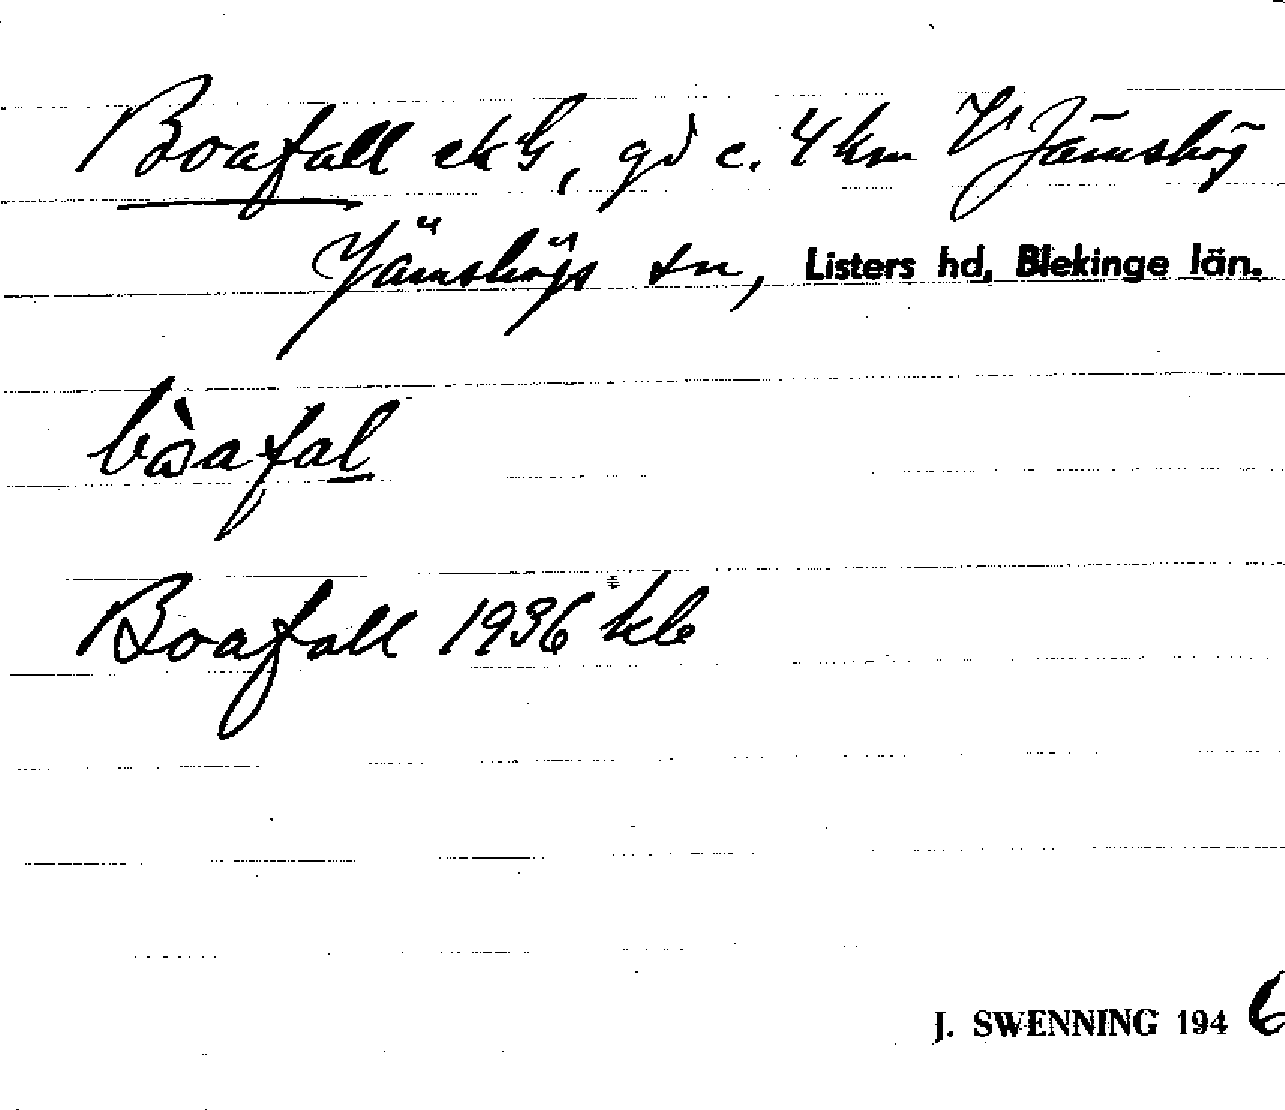 Boafall ekG, gd c. 4 km V Jämshög
Jämshögs sn, Listers hd, Blekinge län.
bòafal
Boafall 1936 kb
J. SWENNING 1946